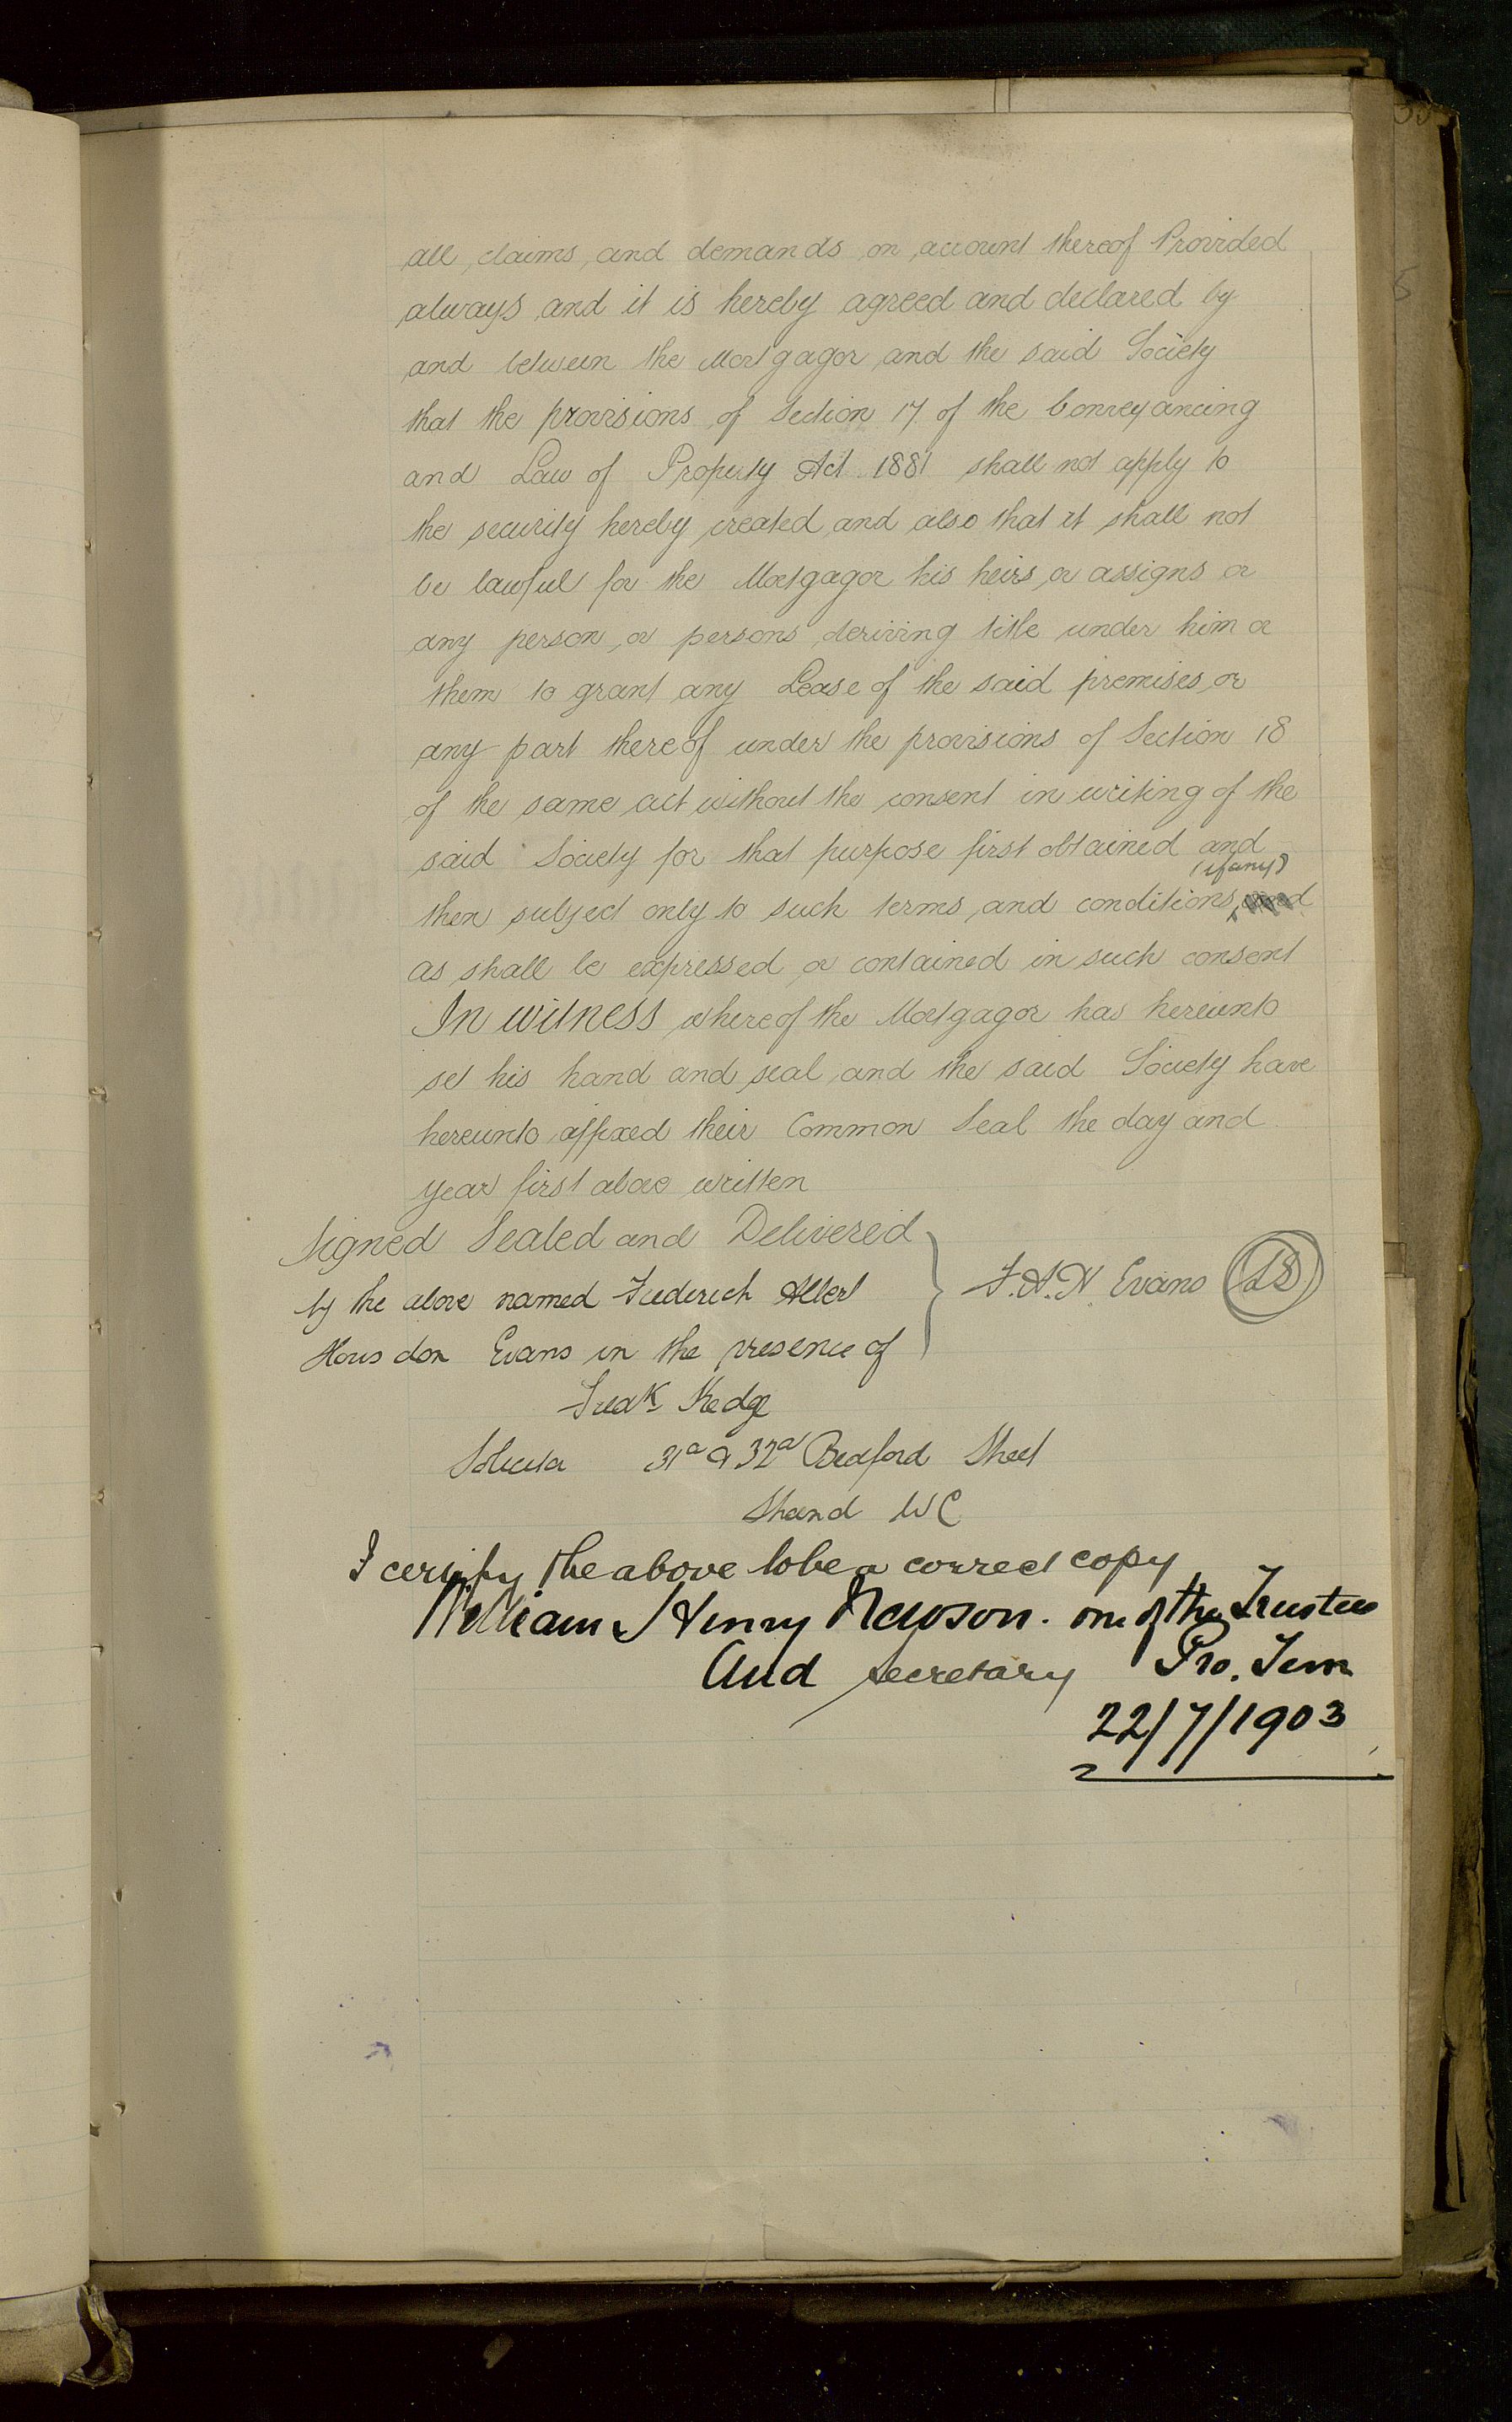 all claims and demands on account thereof Provided
always and it is hereby agreed and declared by
and between the Mortgagor and the said Society
that the provisions of Section 17 of the Conveyancing
and Law of Property Act 1881 shall not apply to
the security hereby created and also that it shall not
be lawful for the Mortgagor his heirs or assigns or
any person or persons deriving title under him or
them to grant any Lease of the said premises or
any part thereof under the provisions of Section 18
of the same act without the consent in writing of the
said Society for that purpose first obtained and
(if any)
then subject only to such terms and conditions and
as shall be expressed or contained in such consent
In witness whereof the Mortgagor has hereunto
set his hand and seal and the said Society have
hereunto affixed their Common Seal the day and
year first above written
Signed Sealed and Delivered
by the above named Frederick Albert
Housdon Evans in the presence of
F. A. H. Evans LS
Fredk Kedge
Solicitor 31a & 32a Bedford Street
Strand WC
I certify the above to be a correct copy
William Henry Newson. one of the Trustees
And Secretary Pro. Tem
22/7/1903